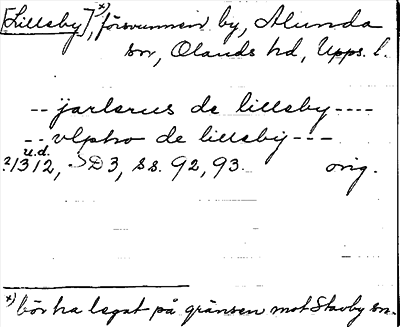 [Lilleby]*), försvunnen by, Alunda
sn, Olands hd, Upps. l.
-- jarlerus de lilleby ----
-- vlpho de lilleby ---
u.d.
?1312, D3, ss. 92, 93. orig.
*) bör ha legat på gränsen mot Stavby sn.